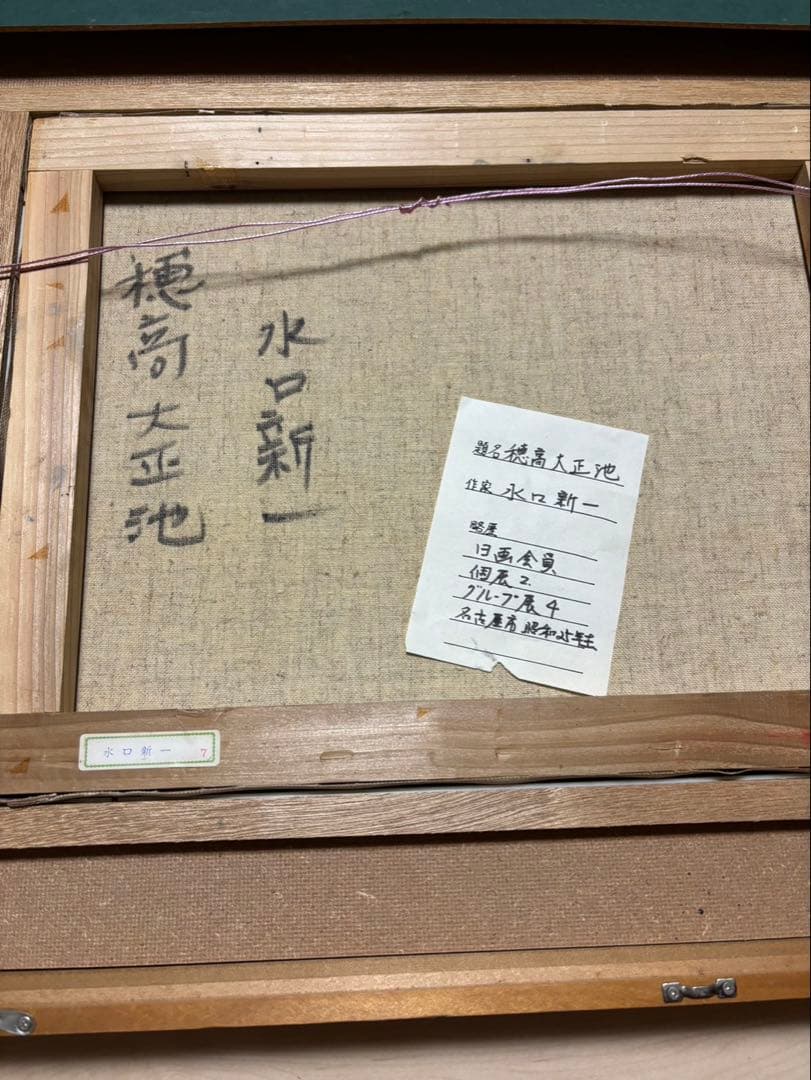 穂高大正池
水口新一
題名 穂高大正池
作家 水口新一
略歴
日画会員
個展2
グループ展4
名古屋市 昭和25年生
水口新一 7